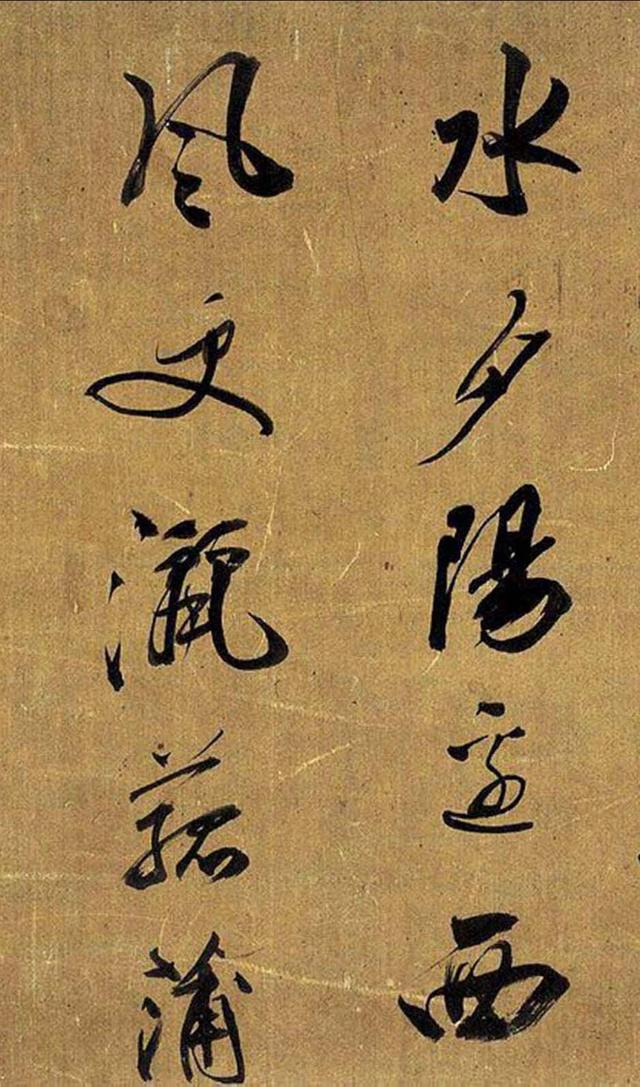 水夕陽邊西
風更灑菰蒲